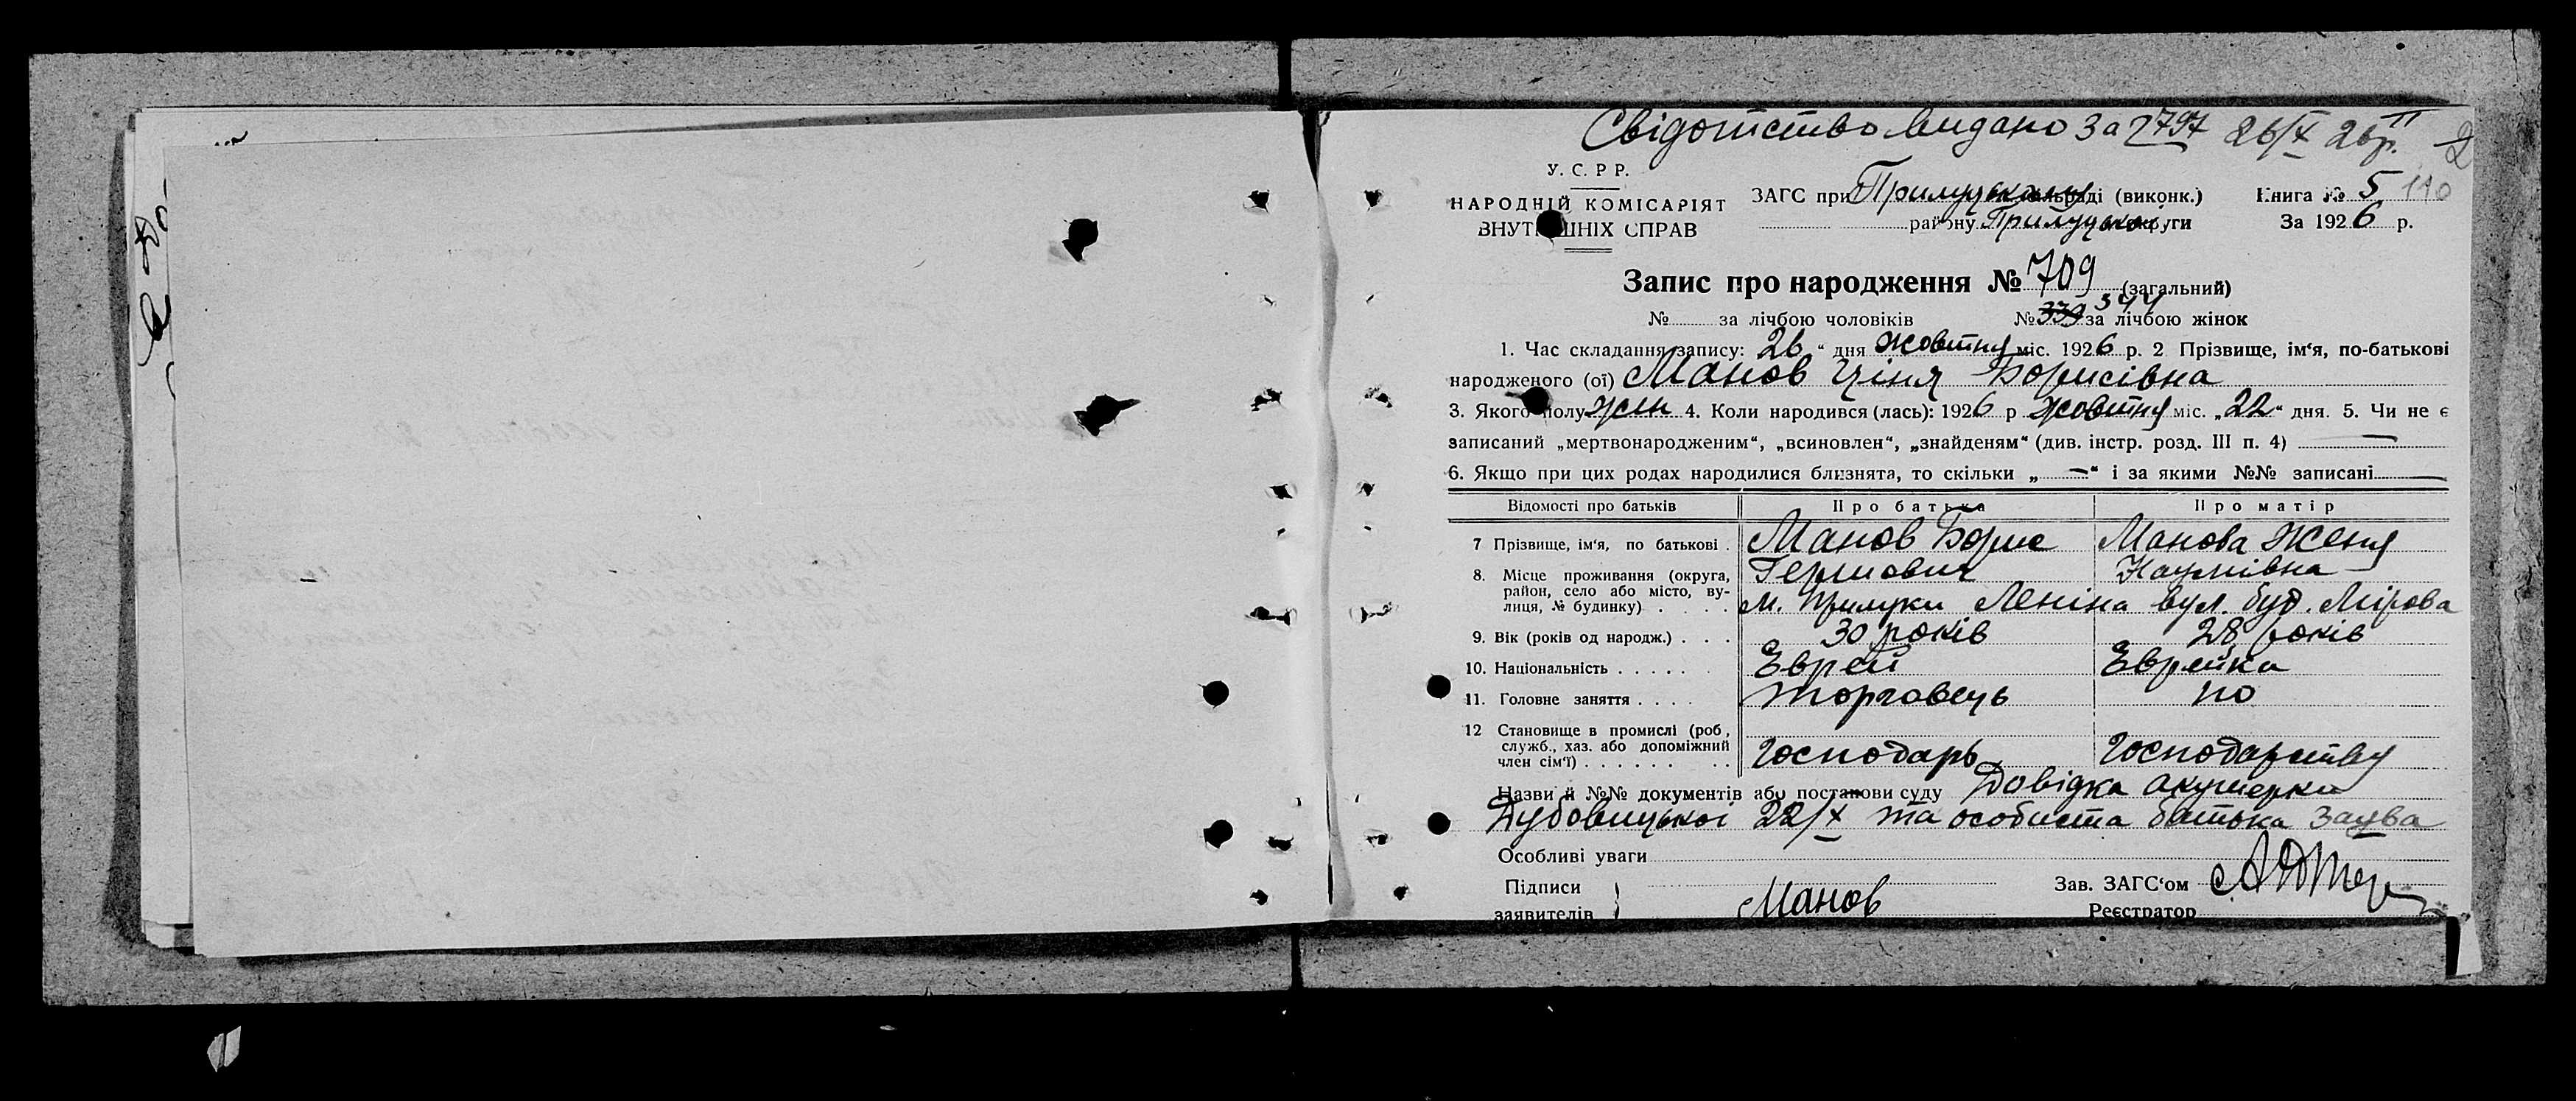 Свідотство видано за 2797 26/X 26 р.
У. С. Р Р.
НАРОДНІЙ КОМІСАРІЯТ
ВНУТРІШНІХ СПРАВ
ЗАГС при Прилуцькому міськраді (виконк.)
району Прилуцької округи
Книга № 5 110
За 1926 р.
Запис про народження № 709 (загальний)
№ за лічбою чоловіків № 339 344 за лічбою жінок
1. Час складання запису: 26 " дня жовтня міс. 1926 р. 2 Прізвище, ім'я, по-батькові
народженого (ої) Манов Ціня Борисівна
3. Якого полу жін 4. Коли народився (лась): 1926 р жовтня міс. „22" дня. 5. Чи не є
записаний „мертвонародженим", „всиновлен", „знайденям" (див. інстр. розд. III п. 4) —
6. Якщо при цих родах народилися близнята, то скільки „—" і за якими №№ записані —
Відомості про батьків Про батька Про матір
7 Прізвище, ім'я, по батькові . Манов Борис Манова Женя
Герцович Наумівна
8. Місце проживання (округа,
район, село або місто, ву-
лиця, № будинку) . . . . м. Прилуки Леніна вул. буд. Мірова
9. Вік (років од народж.) . . . 30 років 28 років
10. Національність . . . . . Еврей Еврейка
11. Головне заняття . . . . торговець по
12 Становище в промислі (роб,
служб., хаз. або допоміжний
член сім'ї) . . . . . . . . Господарь Господарству
Назви й №№ документів або постанови суду Довідка акушерки
Дубовицької 22/X та особиста батька заява
Особливі уваги
Підписи
заявителів } Манов
Зав. ЗАГС'ом
Реєстратор